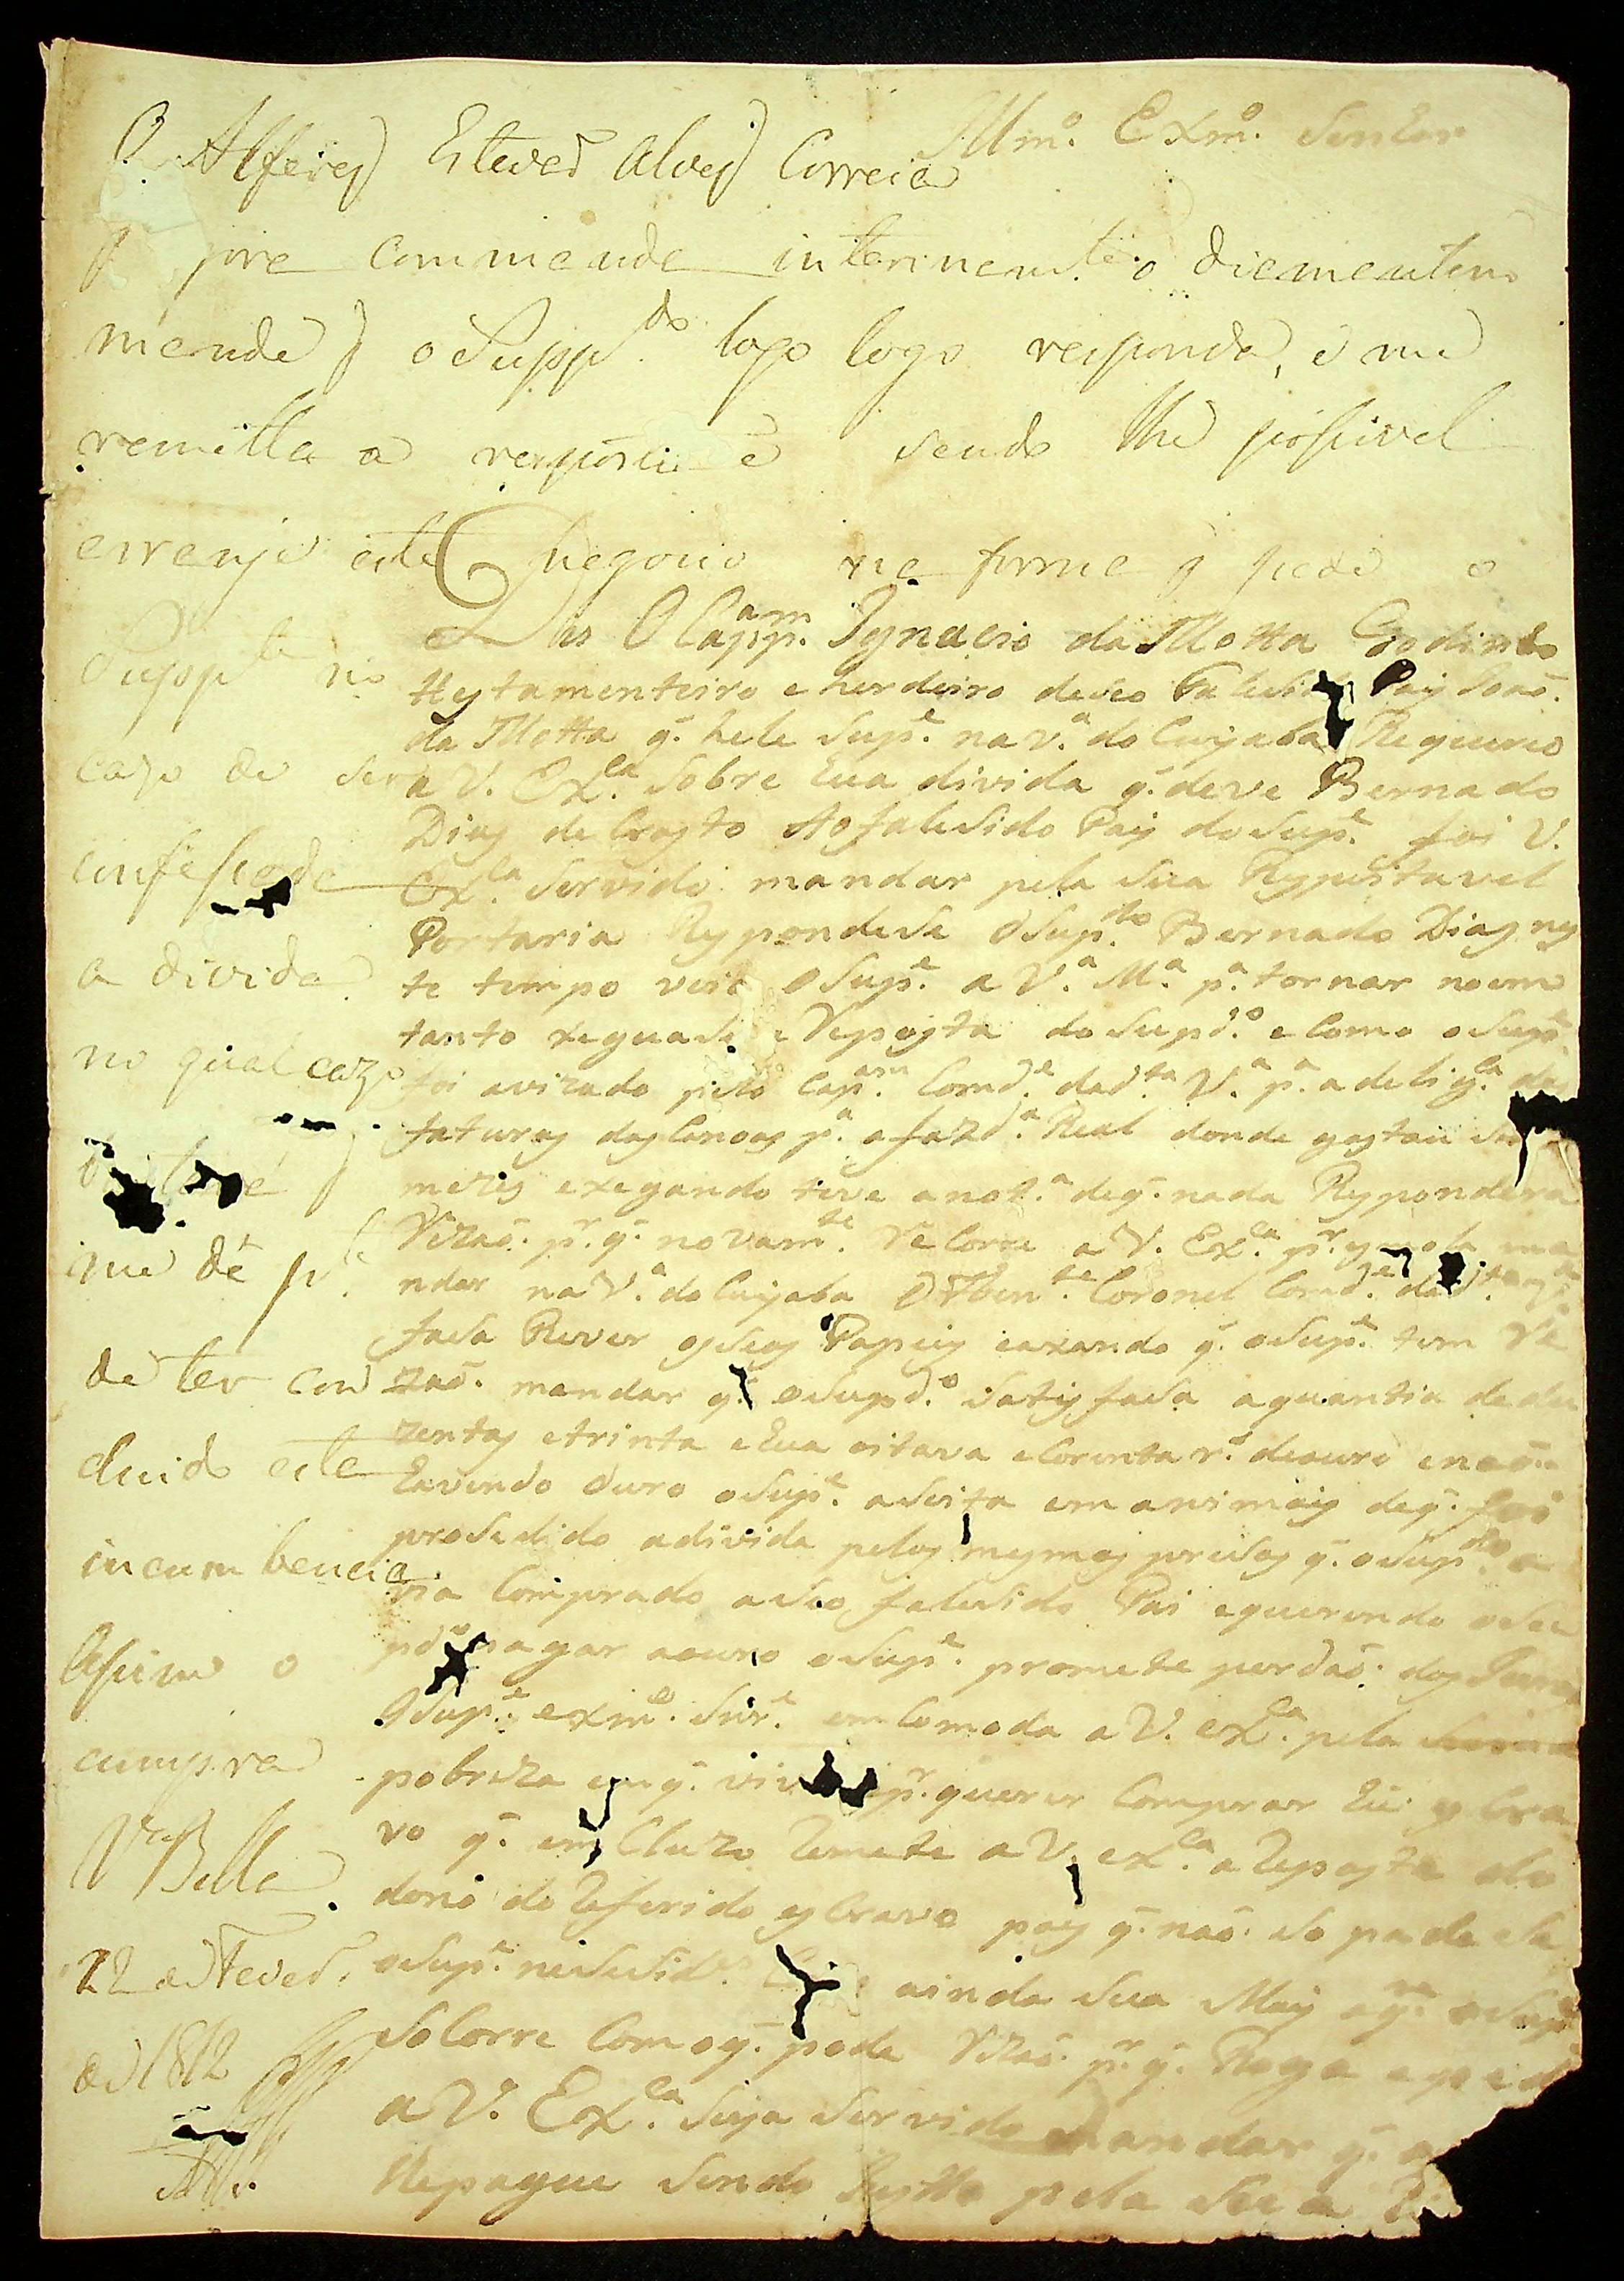 Illmo. Exmo. Senhor
O Alferes Esteves Alves Correia
q commanda interinamte. o Diamantino
mande q o Suppdo. logo logo responda, e me
remetta a resposta e sendo lhe possivel
arranje este negocio na forma q pede o
Suppte no
cazo de ser
confessada
a divida
no qual cazo
me dê pte.
de ter con
cluido este
incumbencia
Assim o
cumpra
Va. Bella
22 de Fever.
de 1812
Diz O Capam. Ignacio da Motta Godinho
Testamenteiro e herdeiro de seo Falesido Pay Joaõ.
da Motta q. hele Supe. na Va. do Cuyaba Requereo
a V. Exla. Sobre hua divida q. deve Bernado
Dias de Crasto Ao falesido Pay do Supe. foi V.
Exla. Servido mandar pela Sua Respeitavel
Portaria Respondese O Supdo. Bernado Dias nes
te tempo veio o Supe. a Va. Ma. pa. tornar no em
tanto xeguase e Reposta do Supdo. e Como o Supe.
foi avizado pelo Capam. Comde. da dta. Va. pa. a deligla. das
faturas das Canoas pa. a fazda. Real donde gastou
mezes e xegando teve a nota. de q. nada Respondera
Rezaõ. pr. q. novamte. Recorre a V. Exla. pr. esmola ma
ndar na Va. do Cuyaba O Thente. Coronel Comde. da dta.
fasa Rever os Seos Papeis e axando q. o Supe. tem Re
zaõ. mandar q. o Supdo. Satisfasa a quantia de du
zentas e trinta e hua oitava e Corenta rs. de ouro e naõ.
havendo Ouro o Supe. a Seita em animais de q. foi
prosedido a divida pelos mesmos presos q. o Supdo. a
via Comprado a Seo falesido Pai e querendo o Su
pdo. pagar a ouro o Supe. promete perdaõ. dos Juros
O Supe. exmo. Snre. emComoda a V. exla. pela
pobreza em q. vive e pr. querer Comprar hũ esCra
vo q. emCluzo Remete a V. exla. a Reposta do
dono do Referido esCravo pois q. naõ. So padese
o Supe. nesesid. ainda Sua May a qm. o Supe.
SoCorre Como q. pode Rezaõ. pr. q. Roga e pede
a V. Exla. Seja Servido Mandar q. o
Repague Sendo Justo pela Sua